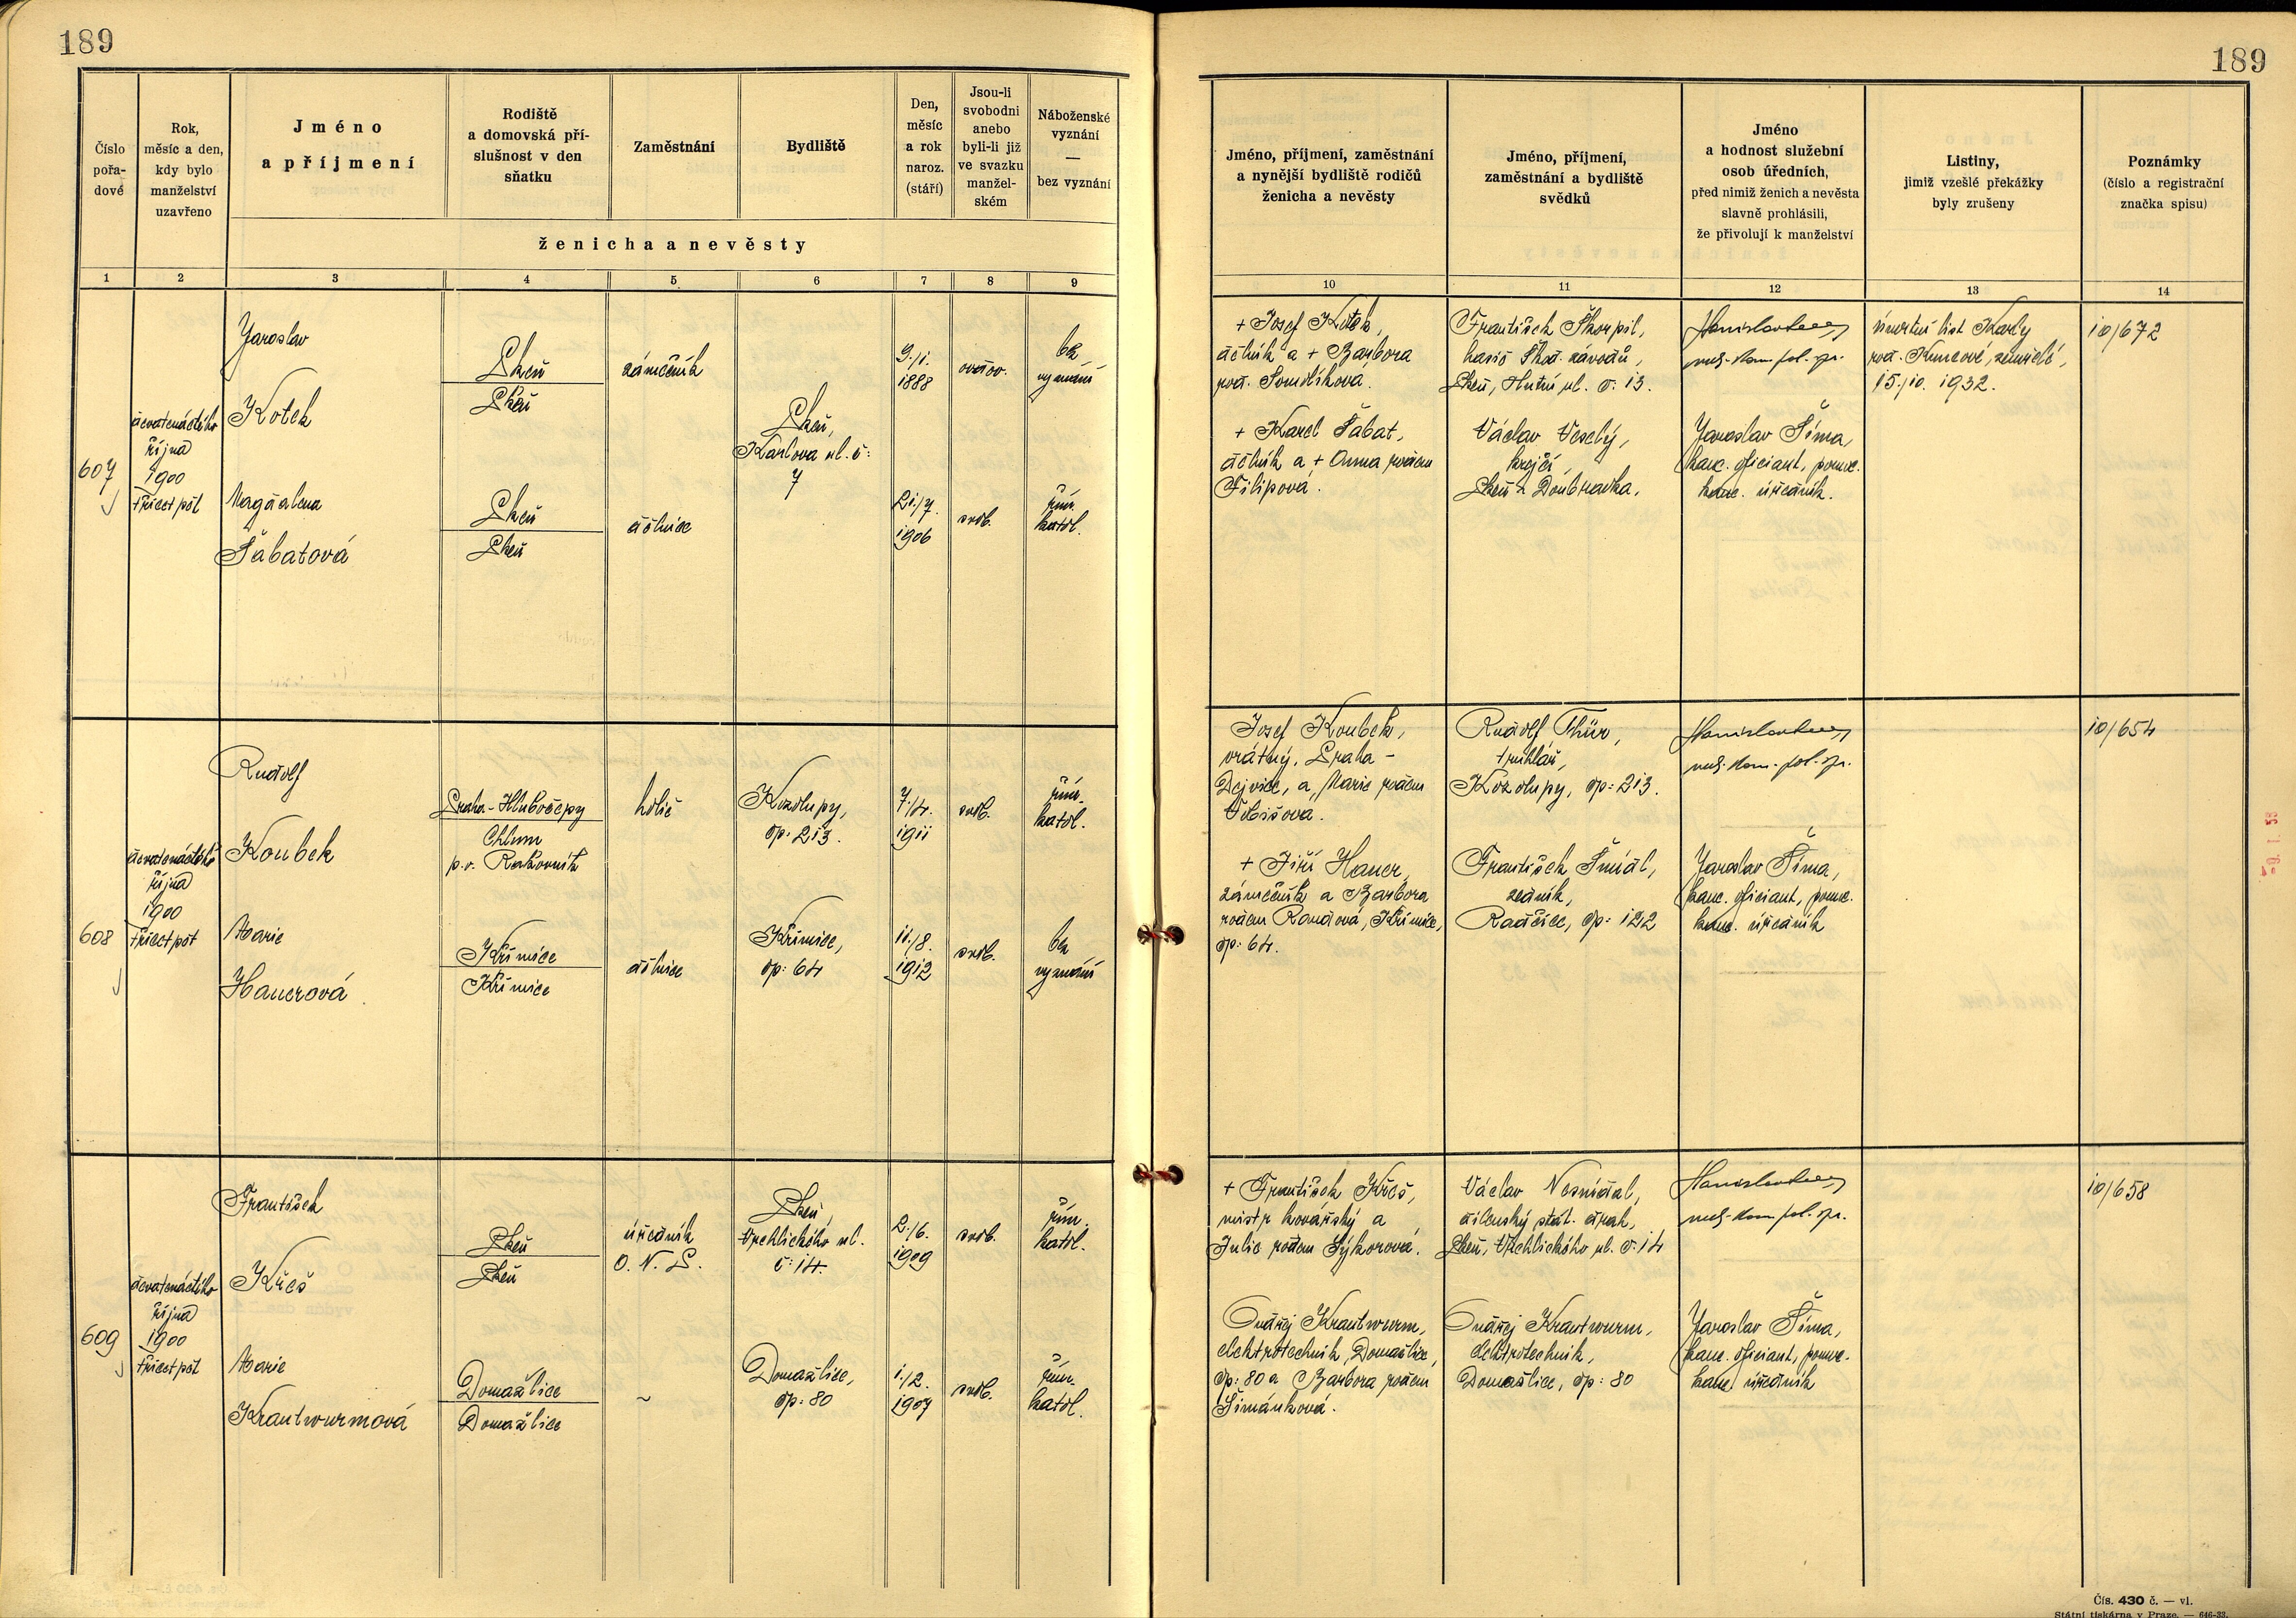 189
189
Číslo pořa-dové
Rok, měsíc a den, kdy bylo manželství uzavřeno
Jméno a příjmení
Rodiště a domovská pří-slušnost v den sňatku
Zaměstnání
Bydliště
Den, měsíc a rok naroz. (stáří)
Jsou-li svobodni anebo byli-li již ve svazku manžel-ském
Náboženské vyznání — bez vyznání
ženicha a nevěsty
Jméno, příjmení, zaměstnání a nynější bydliště rodičů ženicha a nevěsty
Jméno, příjmení, zaměstnání a bydliště svědků
Jméno a hodnost služební osob úředních, před nimiž ženich a nevěsta slavně prohlásili, že přivolují k manželství
Listiny, jimiž vzešlé překážky byly zrušeny
Poznámky (číslo a registrační značka spisu)
1 2 3 4 5 6 7 8 9 10 11 12 13 14
607
devatenáctého
října
1900
třicet pět
Jaroslav
Kotek
Plzeň
Plzeň
zámečník
Plzeň,
Karlova ul. č:
7
9./1.
1888
ovdov.
bez
vyznání
Magdalena
Šabatová
Plzeň
Plzeň
dělnice
21./7.
1906
svob.
řím.
katol.
+ Josef Kotek,
dělník a + Barbora
roz.
+ Karel Šabat,
dělník a + Anna rozen
Filipová.
František Škorpil,
hasič Škod. závodů,
Plzeň, Hutní ul. č. 13.
Václav Veselý,
krejčí
Plzeň - Doubravka.
Jaroslav Šíma,
kanc. oficiant, pomoc.
kanc. úředník.
úmrtní list Karly
roz. Kuncové, zemřelé,
15./10. 1932.
10/672
608
devatenáctého
října
1900
třicet pět
Rudolf
Koubek
Praha - Hlubočepy
Chlum
p. o. Rakovník
holič
Kozolupy,
čp: 213.
7./4.
1911
svob.
řím.
katol.
Marie
Hauerová
Křimice
Křimice
dělnice
Křimice,
čp: 64
11./8.
1912
svob.
bez
vyznání
Josef Koubek,
vrátný, Praha -
Dejvice, a Marie rozen
+ Jiří Hauer,
zámečník a Barbora
rozen Randová, Křimice,
čp: 64.
Rudolf Thür,
truhlář,
Kozolupy, čp: 213.
František Šmídl,
zedník,
Radčice, čp: 122
Jaroslav Šíma,
kanc. oficiant, pomoc.
kanc. úředník
10/654
609
devatenáctého
října
1900
třicet pět
František
Křeš
Plzeň
Plzeň
úředník
O. N. P.
Plzeň,
Vrchlického ul.
č: 14.
2./6.
1909
svob.
řím.
katol.
Marie
Krautwurmová
Domažlice
Domažlice
~
Domažlice,
čp: 80
1./2.
1907
svob.
řím.
katol.
+ František Křeš,
mistr kovářský a
Julie rozen Sýkorová.
Ondřej Krautwurm,
elektrotechnik, Domažlice,
čp: 80 a Barbora rozen
Šimánková.
Václav Nesnídal,
dílenský stát. drah,
Plzeň, Vrchlického ul. č. 14
Ondřej Krautwurm,
elektrotechnik,
Domažlice, čp: 80
Jaroslav Šíma,
kanc. oficiant, pomoc.
kanc. úředník
10/658
Čís. 430 č. — vl.
Státní tiskárna v Praze. — 646-33.